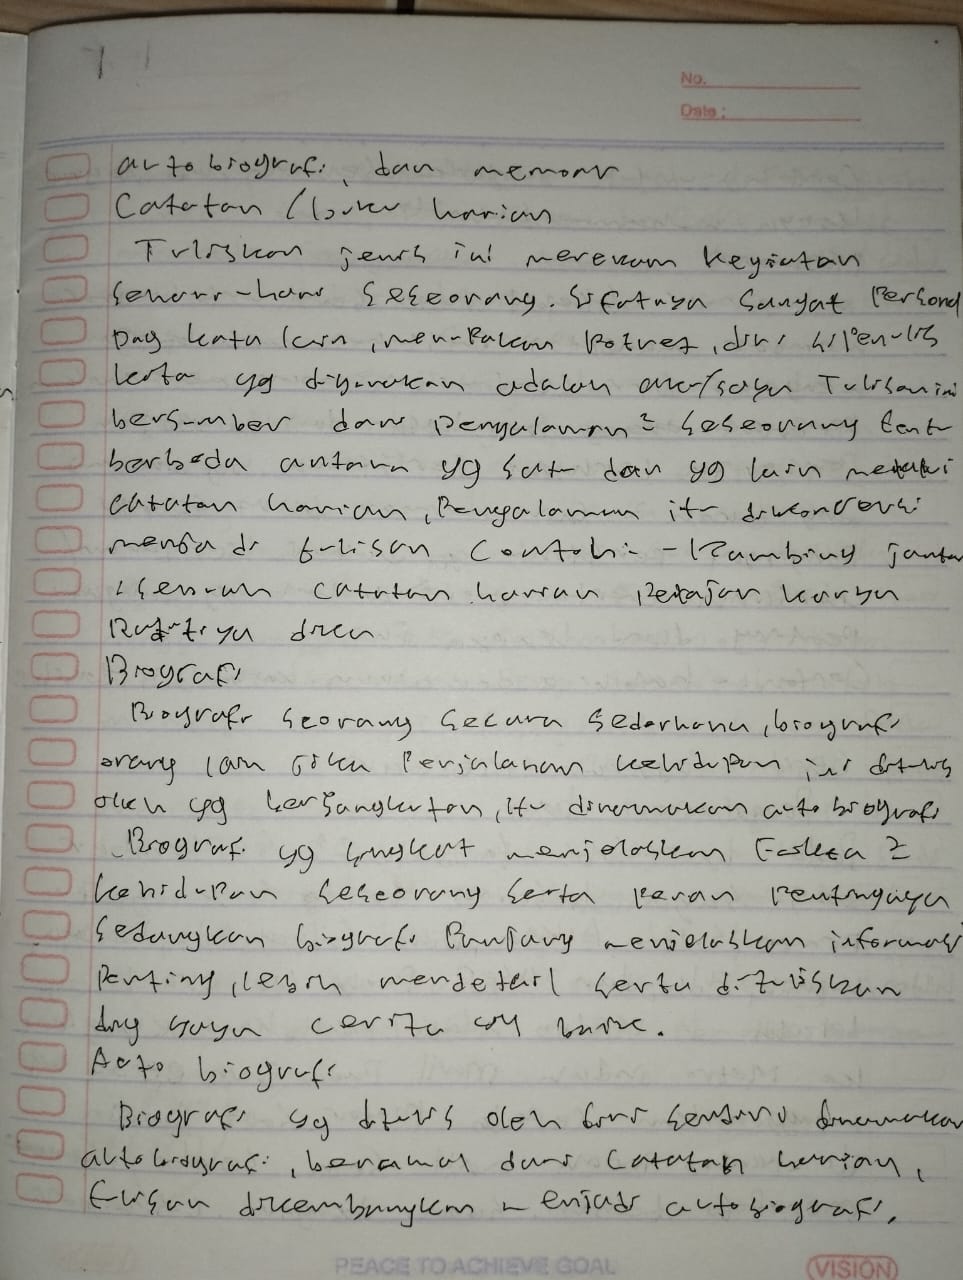 No.
Date :
autobiografi, dan memoar
Catatan / buku harian
Tulisan jenis ini merekam kegiatan
sehari-hari seseorang. Sifatnya sangat personal
Dng kata lain, merupakan potret diri si penulis
kata yg digunakan adalah aku/saya Tulisan ini
bersumber dari pengalaman2 seseorang
berbeda antara yg satu dan yg lain melalui
catatan harian, Pengalaman itu dikonversi
menjadi tulisan. Contoh: - Kambing jantan
sebuah catatan harian pelajar karya
Raditya dika
Biografi
Biografi seorang secara sederhana, biografi
orang lain Jika Perjalanan kehidupan ini ditulis
oleh yg bersangkutan, itu dinamakan autobiografi
Biografi yg singkat menjelaskan Fakta2
kehidupan seseorang serta peran pentingnya
Sedangkan biografi Panjang menjelaskan informasi
Penting, lebih mendetail serta dituliskan
dng gaya cerita yg baik.
Autobiografi
Biografi yg ditulis oleh sendiri dinamakan
autobiografi, berawal dari Catatan harian,
tulisan dikembangkan menjadi autobiografi.
PEACE TO ACHIEVE GOAL
VISION